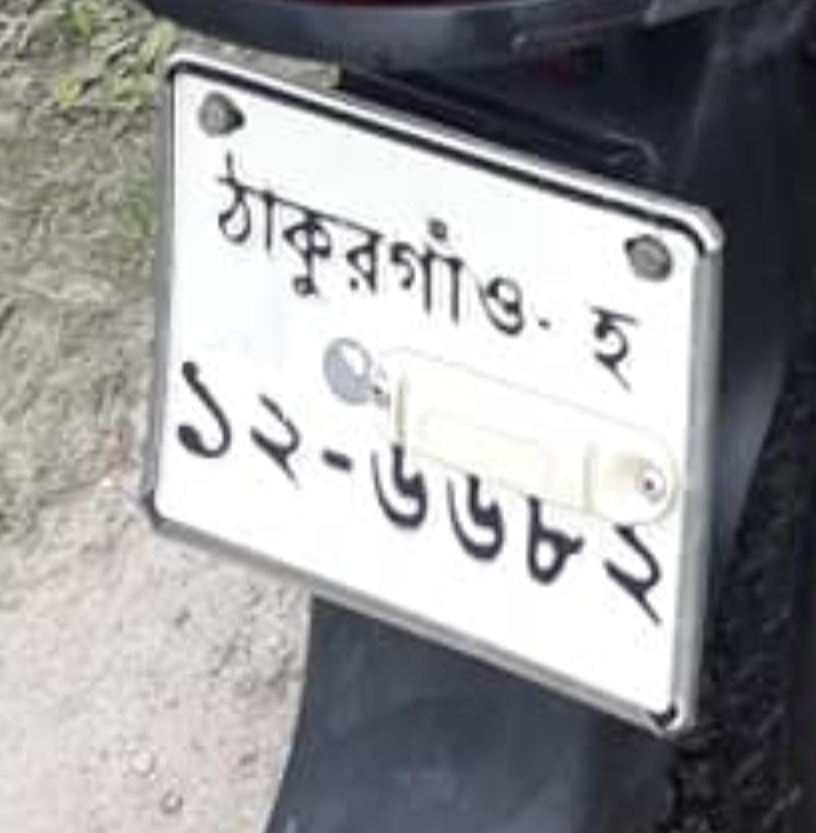 ঠাকুরগাঁও- হ
১২-৬৬৮২